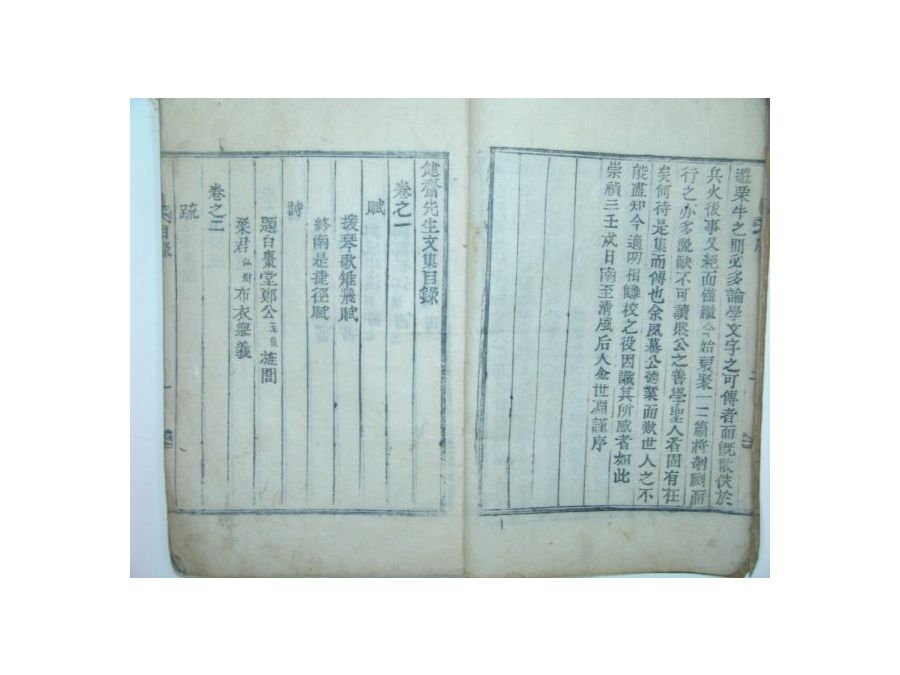 遊栗牛之間必多論學文字之可傳者而旣散佚於
兵火後事又絕而僅繼今始裒聚一二篇將剞劂而
行之亦多訛缺不可讀然公之善學聖人者固有在
矣何待是集而傳也余夙慕公德業而歎世人之不
能盡知今適叨相讎校之役因識其所感者如此
崇禎三壬戌日南至淸風后人金世淵謹序
健齋先生文集目錄
卷之一
賦
援琴歌雉飛賦
終南是捷徑賦
詩
題白棗堂鄭公旌閭
梁君布衣擧義
卷之二
疏
目錄
一